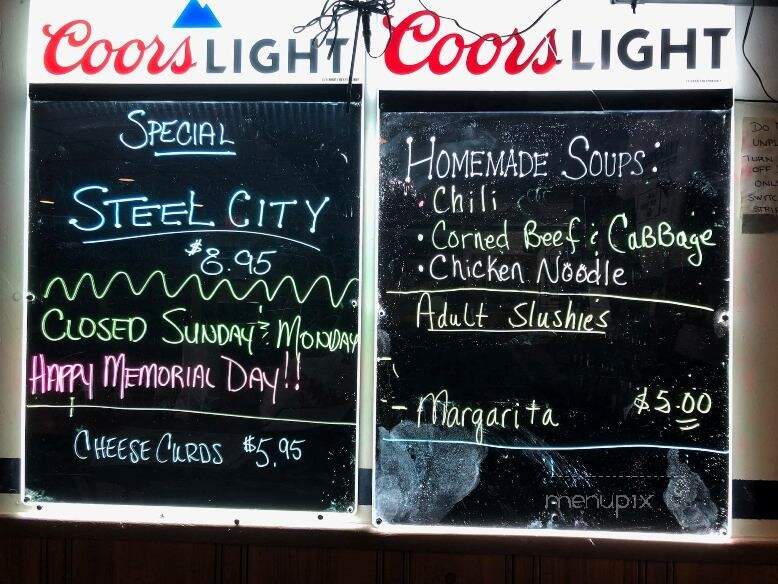 Coors LIGHT
SPECIAL
STEEL CITY
$8.95
CLOSED SUNDAY & MONDAY
HAPPY MEMORIAL DAY!!
CHEESE CURDS $5.95
Coors LIGHT
HOMEMADE SOUPS:
• Chili
• Corned Beef & CABBage
• Chicken Noodle
Adult Slushies
- Margarita $5.00
menupix
DO
TURN
OFF